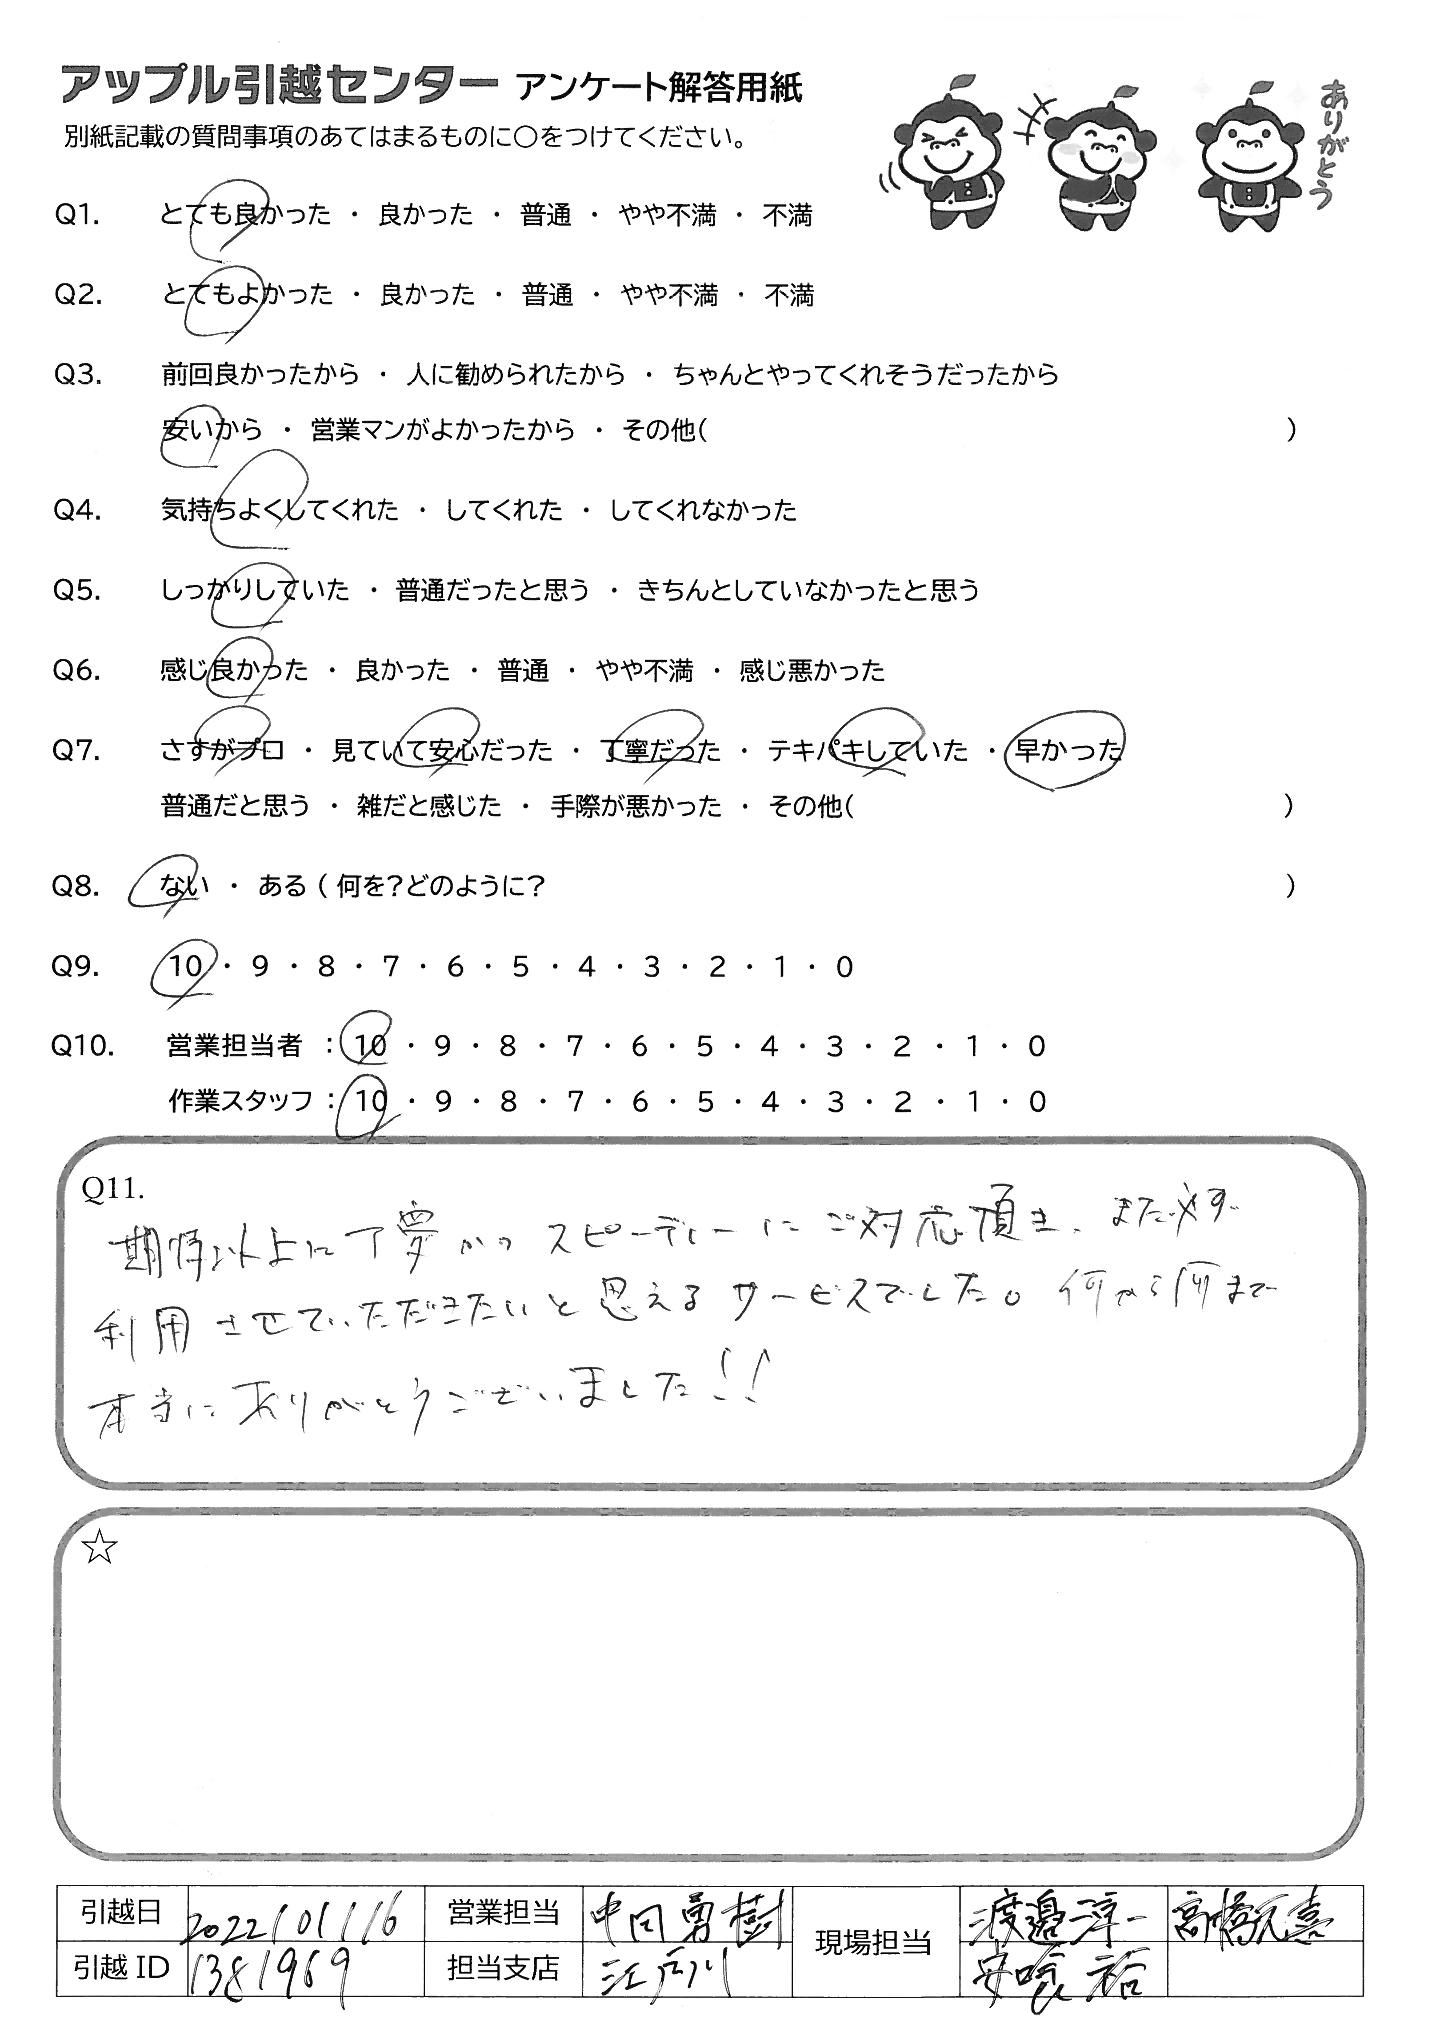 アップル引越センター アンケート解答用紙
ありがとう
別紙記載の質問事項のあてはまるものに〇をつけてください。
Q1. とても良かった ・ 良かった ・ 普通 ・ やや不満 ・ 不満
Q2. とてもよかった ・ 良かった ・ 普通 ・ やや不満 ・ 不満
Q3. 前回良かったから ・ 人に勧められたから ・ ちゃんとやってくれそうだったから
安いから ・ 営業マンがよかったから ・ その他( )
Q4. 気持ちよくしてくれた ・ してくれた ・ してくれなかった
Q5. しっかりしていた ・ 普通だったと思う ・ きちんとしていなかったと思う
Q6. 感じ良かった ・ 良かった ・ 普通 ・ やや不満 ・ 感じ悪かった
Q7. さすがプロ ・ 見ていて安心だった ・ 丁寧だった ・ テキパキしていた ・ 早かった
普通だと思う ・ 雑だと感じた ・ 手際が悪かった ・ その他( )
Q8. ない ・ ある ( 何を?どのように? )
Q9. 10 ・ 9 ・ 8 ・ 7 ・ 6 ・ 5 ・ 4 ・ 3 ・ 2 ・ 1 ・ 0
Q10. 営業担当者 : 10 ・ 9 ・ 8 ・ 7 ・ 6 ・ 5 ・ 4 ・ 3 ・ 2 ・ 1 ・ 0
作業スタッフ : 10 ・ 9 ・ 8 ・ 7 ・ 6 ・ 5 ・ 4 ・ 3 ・ 2 ・ 1 ・ 0
Q11.
期待以上に丁寧かつ スピーディーにご対応頂き、また必ず
利用させていただきたいと思えるサービスでした。何から何まで
本当にありがとうございました!!
☆
引越日 2022/01/16 営業担当 中田勇樹 現場担当 渡邉淳一 高橋元喜
引越 ID 1381969 担当支店 江戸川 安喰 裕